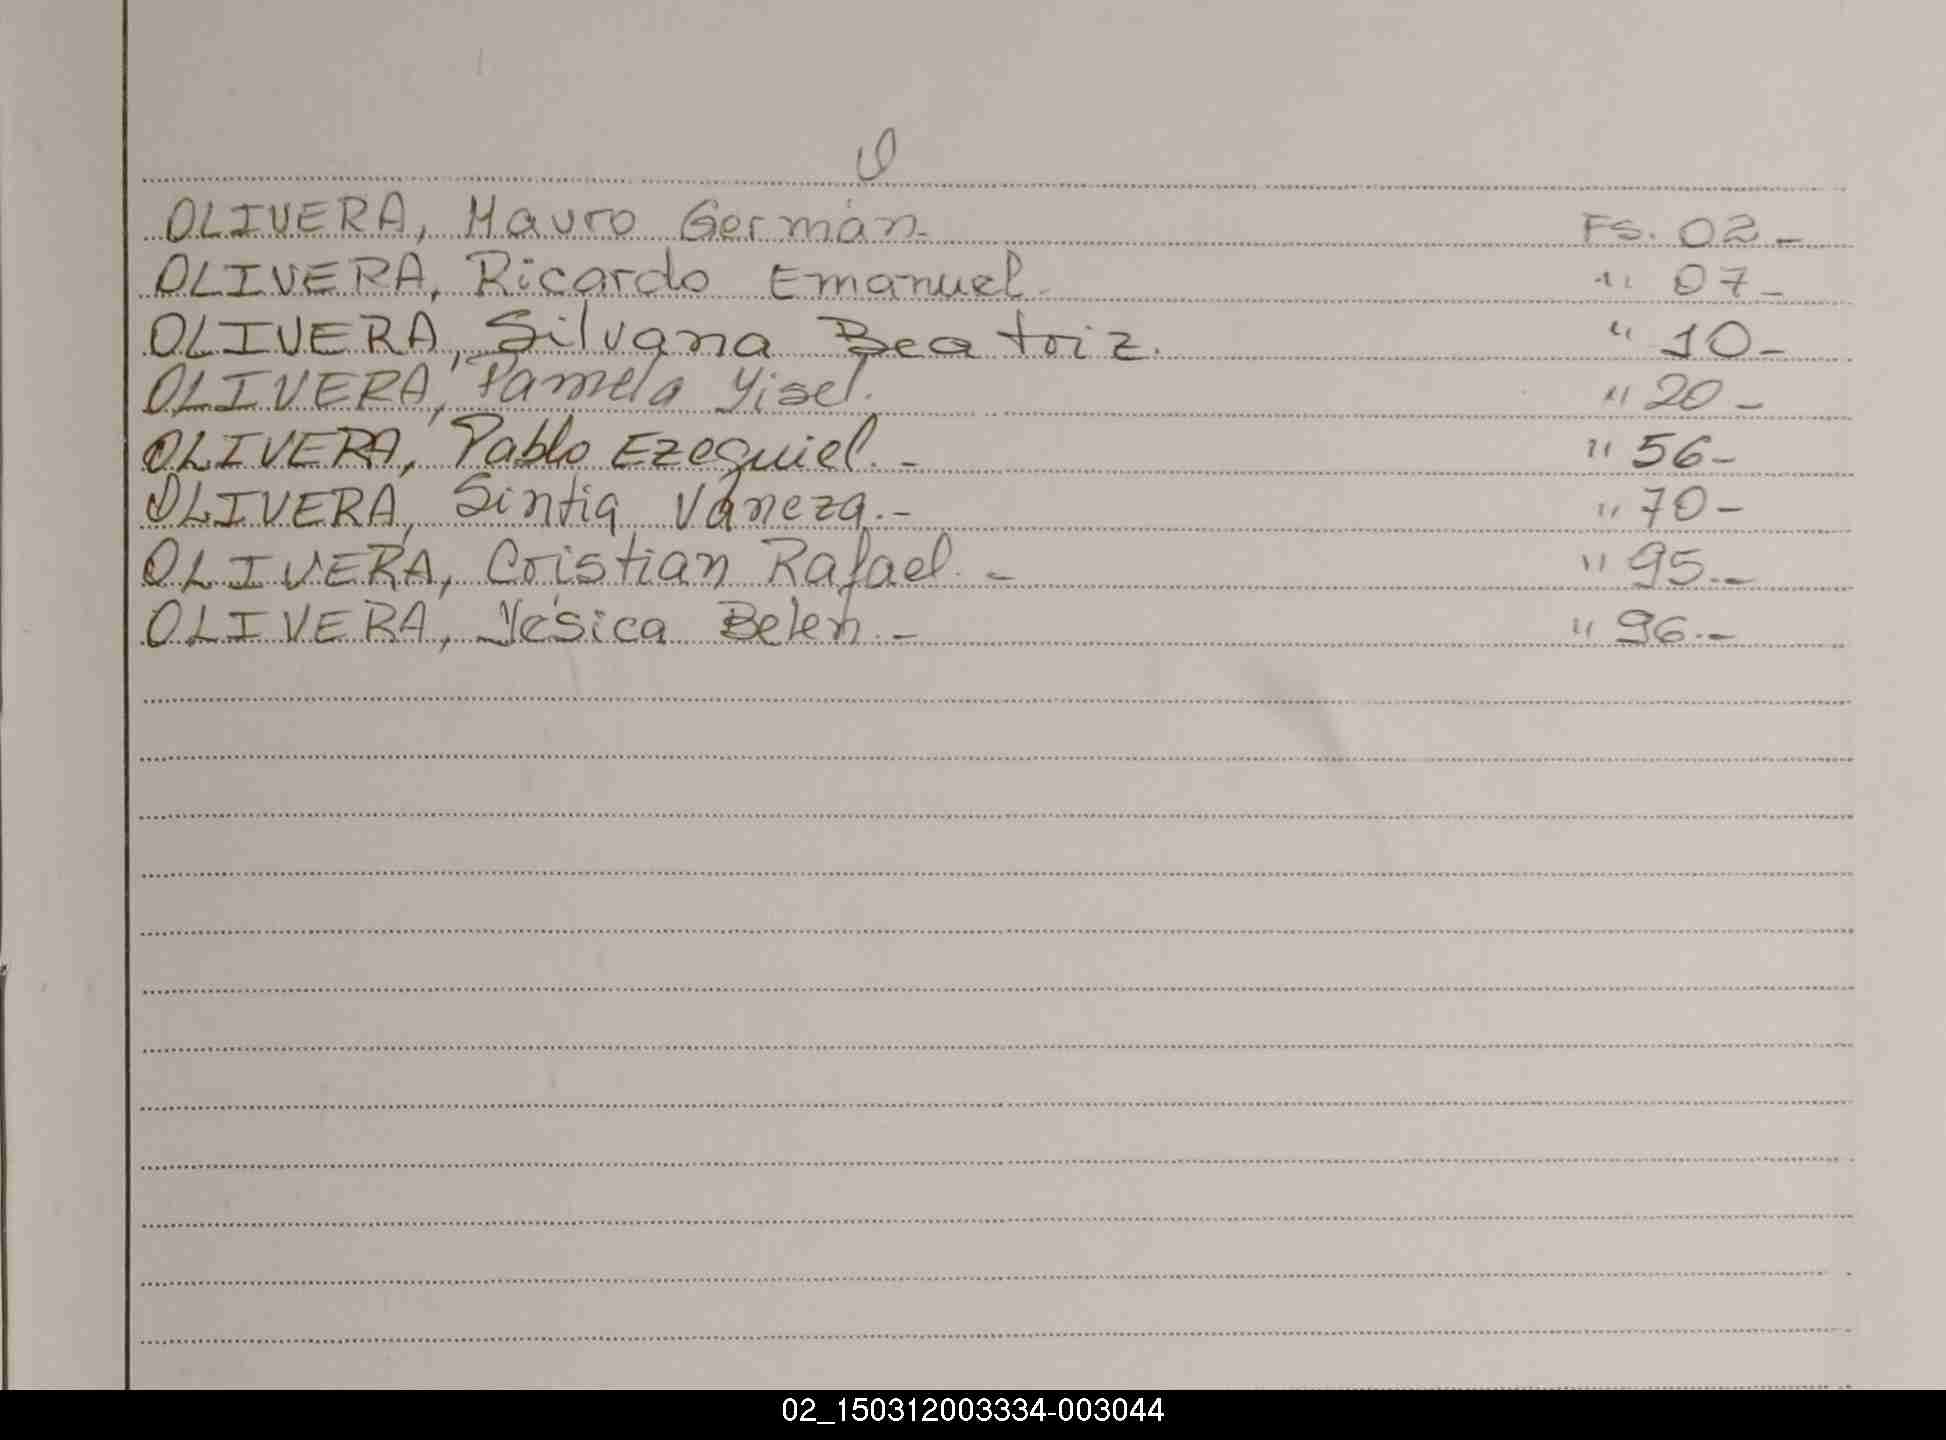 O
OLIVERA, Mauro Germán. FS. 02-
OLIVERA, Ricardo Emanuel. " 07-
OLIVERA, Silvana Beatriz. " 10-
OLIVERA, Pamela Yisel. " 20-
OLIVERA, Pablo Ezequiel.- " 56-
OLIVERA, Sintia Vaneza.- " 70-
OLIVERA, Cristian Rafael.- " 95.-
OLIVERA, Yésica Belen.- " 96.-
02_150312003334-003044